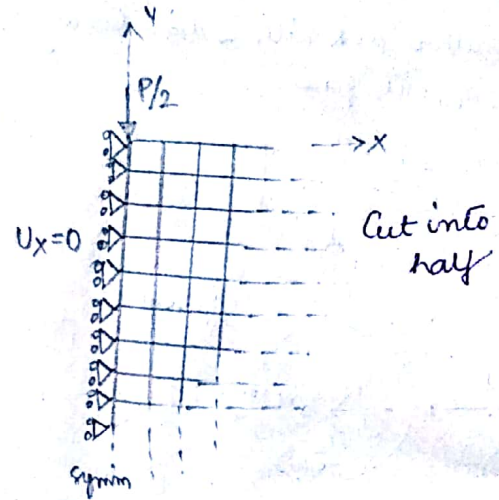 Y
P/2
X
Ux=0
Cut into
half
symm